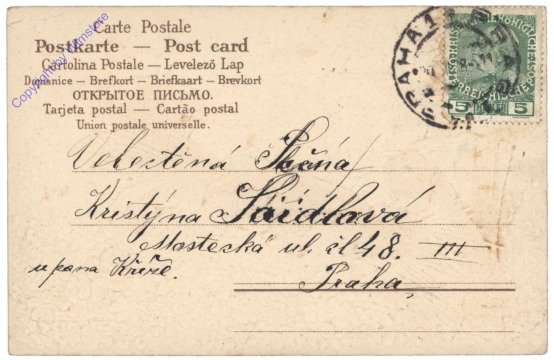 Carte Postale
Postkarte — Post card
Cartolina Postale — Levelező Lap
Dopisnice — Brefkort — Briefkaart — Brevkort
ОТКРЫТОЕ ПИСЬМО.
Tarjeta postal — Cartão postal
Union postale universelle.
Copyright by Filmstore
PRAHA 1
5 5
Velectěná Slečna
Kristýna Šaidlová
Mostecká ul. čl 48. III
u pana Kříže.
Praha